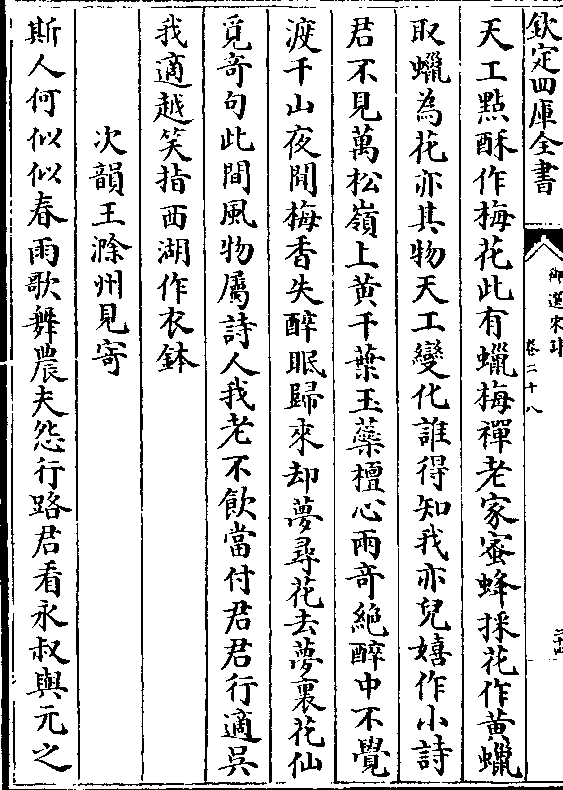 欽定四庫全書
御選宋詩
卷二十八
天工點酥作梅花此有蠟梅禪老家蜜蜂採花作黃蠟
取蠟為花亦其物天工變化誰得知我亦兒嬉作小詩
君不見萬松嶺上黃千葉玉蘂檀心兩奇絶醉中不覺
渡千山夜聞梅香失醉眠歸來却夢尋花去夢裏花仙
覓竒句此間風物屬詩人我老不飲當付君君行適吳
我適越笑指西湖作衣鉢
次韻王滁州見寄
斯人何似似春雨歌舞農夫怨行路君看永叔與元之